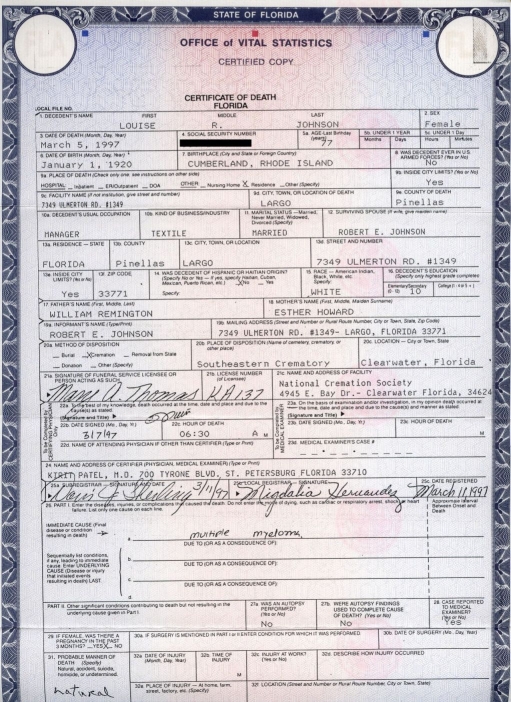 STATE OF FLORIDA
OFFICE of VITAL STATISTICS
CERTIFIED COPY
CERTIFICATE OF DEATH
FLORIDA
LOCAL FILE NO.
1. DECEDENT'S NAME FIRST MIDDLE LAST 2. SEX
LOUISE R. JOHNSON Female
3. DATE OF DEATH (Month, Day, Year) 4. SOCIAL SECURITY NUMBER 5a. AGE-Last Birthday (years) 5b. UNDER 1 YEAR 5c. UNDER 1 Day
Months Days Hours Minutes
March 5, 1997 77
6. DATE OF BIRTH (Month, Day, Year) 7. BIRTHPLACE (City and State or Foreign Country) 8. WAS DECEDENT EVER IN U.S. ARMED FORCES? (Yes or No)
January 1, 1920 CUMBERLAND, RHODE ISLAND No
9a. PLACE OF DEATH (Check only one: see instructions on other side) 9b. INSIDE CITY LIMITS? (Yes or No)
HOSPITAL: Inpatient ER/Outpatient DOA OTHER Nursing Home X Residence Other (Specify) Yes
9c. FACILITY NAME (If not institution, give street and number) 9d. CITY, TOWN, OR LOCATION OF DEATH 9e. COUNTY OF DEATH
7349 ULMERTON RD. #1349 LARGO Pinellas
10a. DECEDENT'S USUAL OCCUPATION 10b. KIND OF BUSINESS/INDUSTRY 11. MARITAL STATUS - Married, Never Married, Widowed, Divorced (Specify) 12. SURVIVING SPOUSE (If wife, give maiden name)
MANAGER TEXTILE MARRIED ROBERT E. JOHNSON
13a. RESIDENCE - STATE 13b. COUNTY 13c. CITY, TOWN, OR LOCATION 13d. STREET AND NUMBER
FLORIDA Pinellas LARGO 7349 ULMERTON RD. #1349
13e. INSIDE CITY LIMITS? (Yes or No) 13f. ZIP CODE 14. WAS DECEDENT OF HISPANIC OR HAITIAN ORIGIN? (Specify No or Yes - If yes, specify Haitian, Cuban, Mexican, Puerto Rican, etc.) X No Yes 15. RACE - American Indian, Black, White, etc. Specify: 16. DECEDENT'S EDUCATION (Specify only highest grade completed)
Specify: Elementary/Secondary (0-12) College (1-4 or 5+)
Yes 33771 WHITE 10
17. FATHER'S NAME (First, Middle, Last) 18. MOTHER'S NAME (First, Middle, Maiden Surname)
WILLIAM REMINGTON ESTHER HOWARD
19a. INFORMANT'S NAME (Type/Print) 19b. MAILING ADDRESS (Street and Number or Rural Route Number, City or Town, State, Zip Code)
ROBERT E. JOHNSON 7349 ULMERTON RD. #1349- LARGO, FLORIDA 33771
20a. METHOD OF DISPOSITION 20b. PLACE OF DISPOSITION (Name of cemetery, crematory, or other place) 20c. LOCATION - City or Town, State
Burial X Cremation Removal from State
Donation Other (Specify) Southeastern Crematory Clearwater, Florida
21a. SIGNATURE OF FUNERAL SERVICE LICENSEE OR PERSON ACTING AS SUCH 21b. LICENSE NUMBER (of Licensee) 21c. NAME AND ADDRESS OF FACILITY
Thomas KA137 National Cremation Society
4945 E. Bay Dr.- Clearwater Florida, 34624
22a. To the best of my knowledge, death occurred at the time, date and place and due to the cause(s) as stated. 23a. On the basis of examination and/or investigation, in my opinion death occurred at the time, date and place and due to the cause(s) and manner as stated.
(Signature and Title) (Signature and Title)
22b. DATE SIGNED (Mo., Day, Yr.) 22c. HOUR OF DEATH 23b. DATE SIGNED (Mo., Day, Yr.) 23c. HOUR OF DEATH
3/7/97 06:30 A M M
22d. NAME OF ATTENDING PHYSICIAN IF OTHER THAN CERTIFIER (Type or Print) 23d. MEDICAL EXAMINER'S CASE #
24. NAME AND ADDRESS OF CERTIFIER (PHYSICIAN, MEDICAL EXAMINER) (Type or Print)
KIRIT PATEL, M.D. 700 TYRONE BLVD, ST. PETERSBURG FLORIDA 33710
25a. SUBREGISTRAR - SIGNATURE AND DATE 25b. LOCAL REGISTRAR - SIGNATURE 25c. DATE REGISTERED
3/11/97 Migdalia Hernandez March 11, 1997
26. PART I. Enter the diseases, injuries, or complications that caused the death. Do not enter the mode of dying, such as cardiac or respiratory arrest, shock, or heart failure. List only one cause on each line. Approximate Interval Between Onset and Death
IMMEDIATE CAUSE (Final disease or condition resulting in death)
a. multiple myeloma
DUE TO (OR AS A CONSEQUENCE OF):
Sequentially list conditions, if any, leading to immediate cause. Enter UNDERLYING CAUSE (Disease or injury that initiated events resulting in death) LAST
b.
DUE TO (OR AS A CONSEQUENCE OF):
c.
DUE TO (OR AS A CONSEQUENCE OF):
d.
PART II. Other significant conditions contributing to death but not resulting in the underlying cause given in Part I. 27a. WAS AN AUTOPSY PERFORMED? (Yes or No) 27b. WERE AUTOPSY FINDINGS USED TO COMPLETE CAUSE OF DEATH? (Yes or No) 28. CASE REPORTED TO MEDICAL EXAMINER? (Yes or No)
No No Yes
29. IF FEMALE, WAS THERE A PREGNANCY IN THE PAST 3 MONTHS? YES X NO 30a. IF SURGERY IS MENTIONED IN PART I or II ENTER CONDITION FOR WHICH IT WAS PERFORMED 30b. DATE OF SURGERY (Mo., Day, Year)
31. PROBABLE MANNER OF DEATH (Specify) Natural, accident, suicide, homicide, or undetermined. 32a. DATE OF INJURY (Month, Day, Year) 32b. TIME OF INJURY 32c. INJURY AT WORK? (Yes or No) 32d. DESCRIBE HOW INJURY OCCURRED
M
natural 32e. PLACE OF INJURY - At home, farm, street, factory, etc. (Specify) 32f. LOCATION (Street and Number or Rural Route Number, City or Town, State)